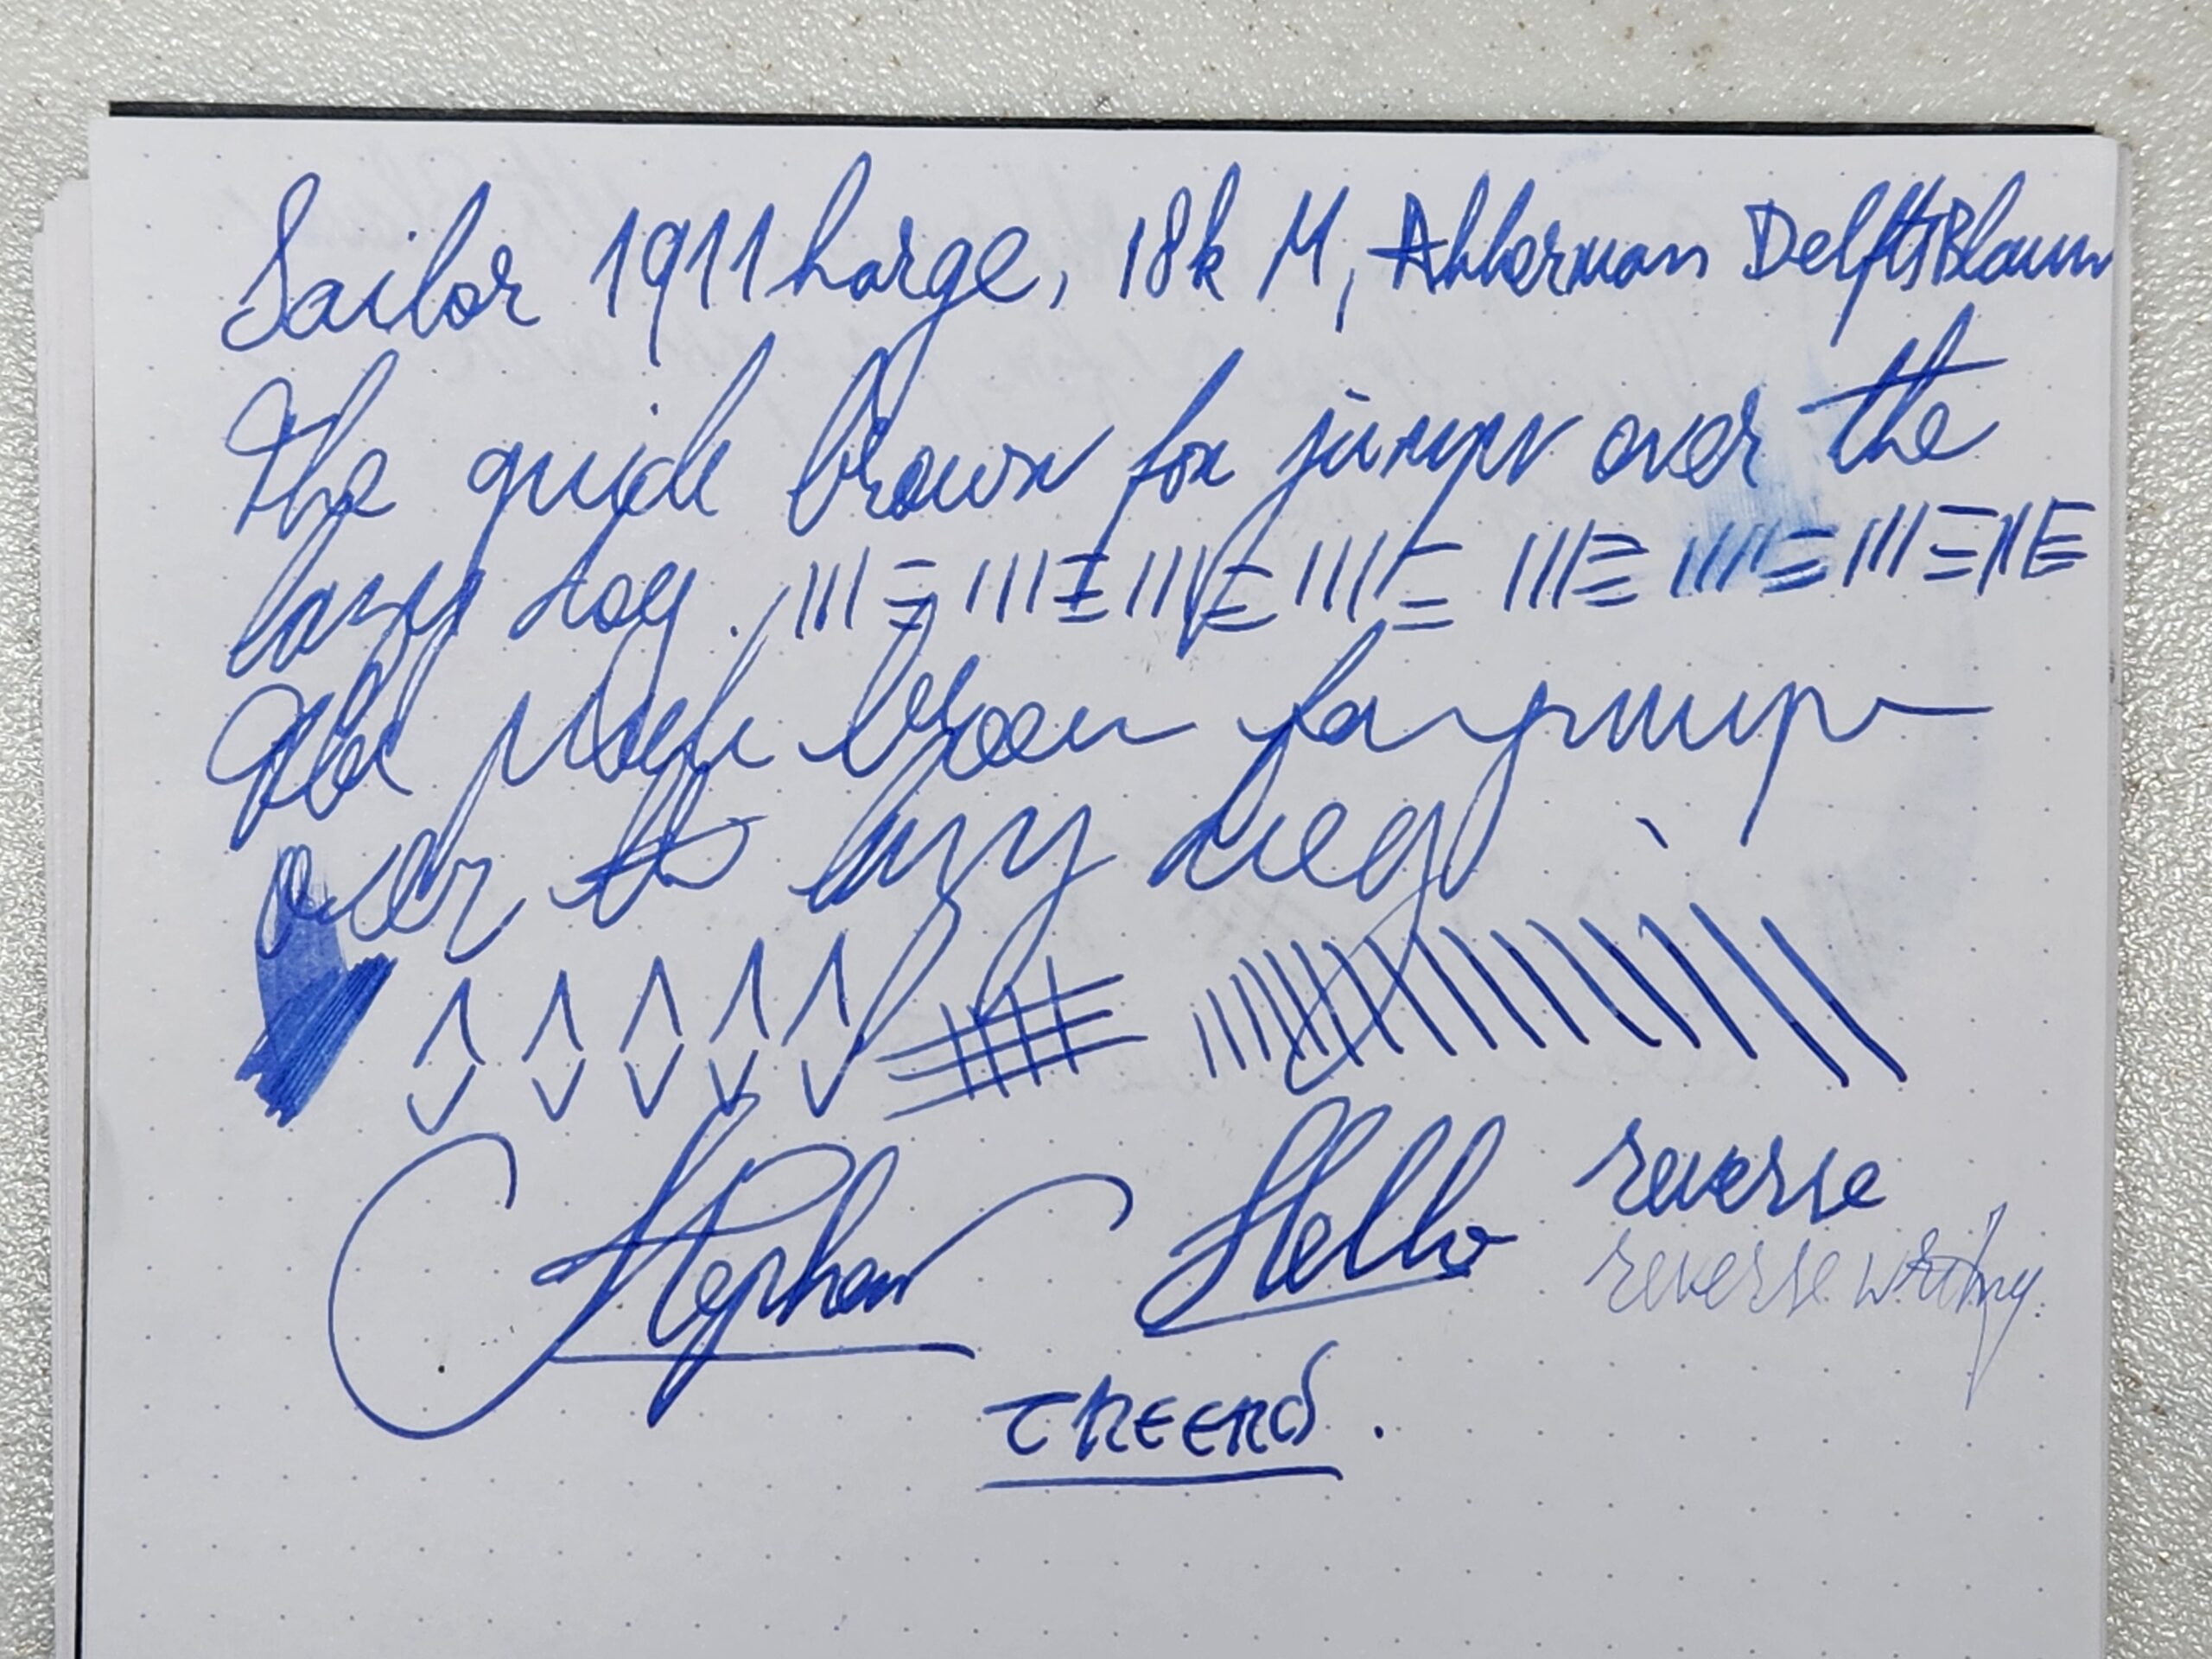 Sailor 1911 Large, 18k M, Akkerman Delfts Blauw
The quick brown fox jumps over the
lazy dog.
The quick brown fox jumps
over the lazy dog
Stephan Hello reverse
reverse writing
THE END.